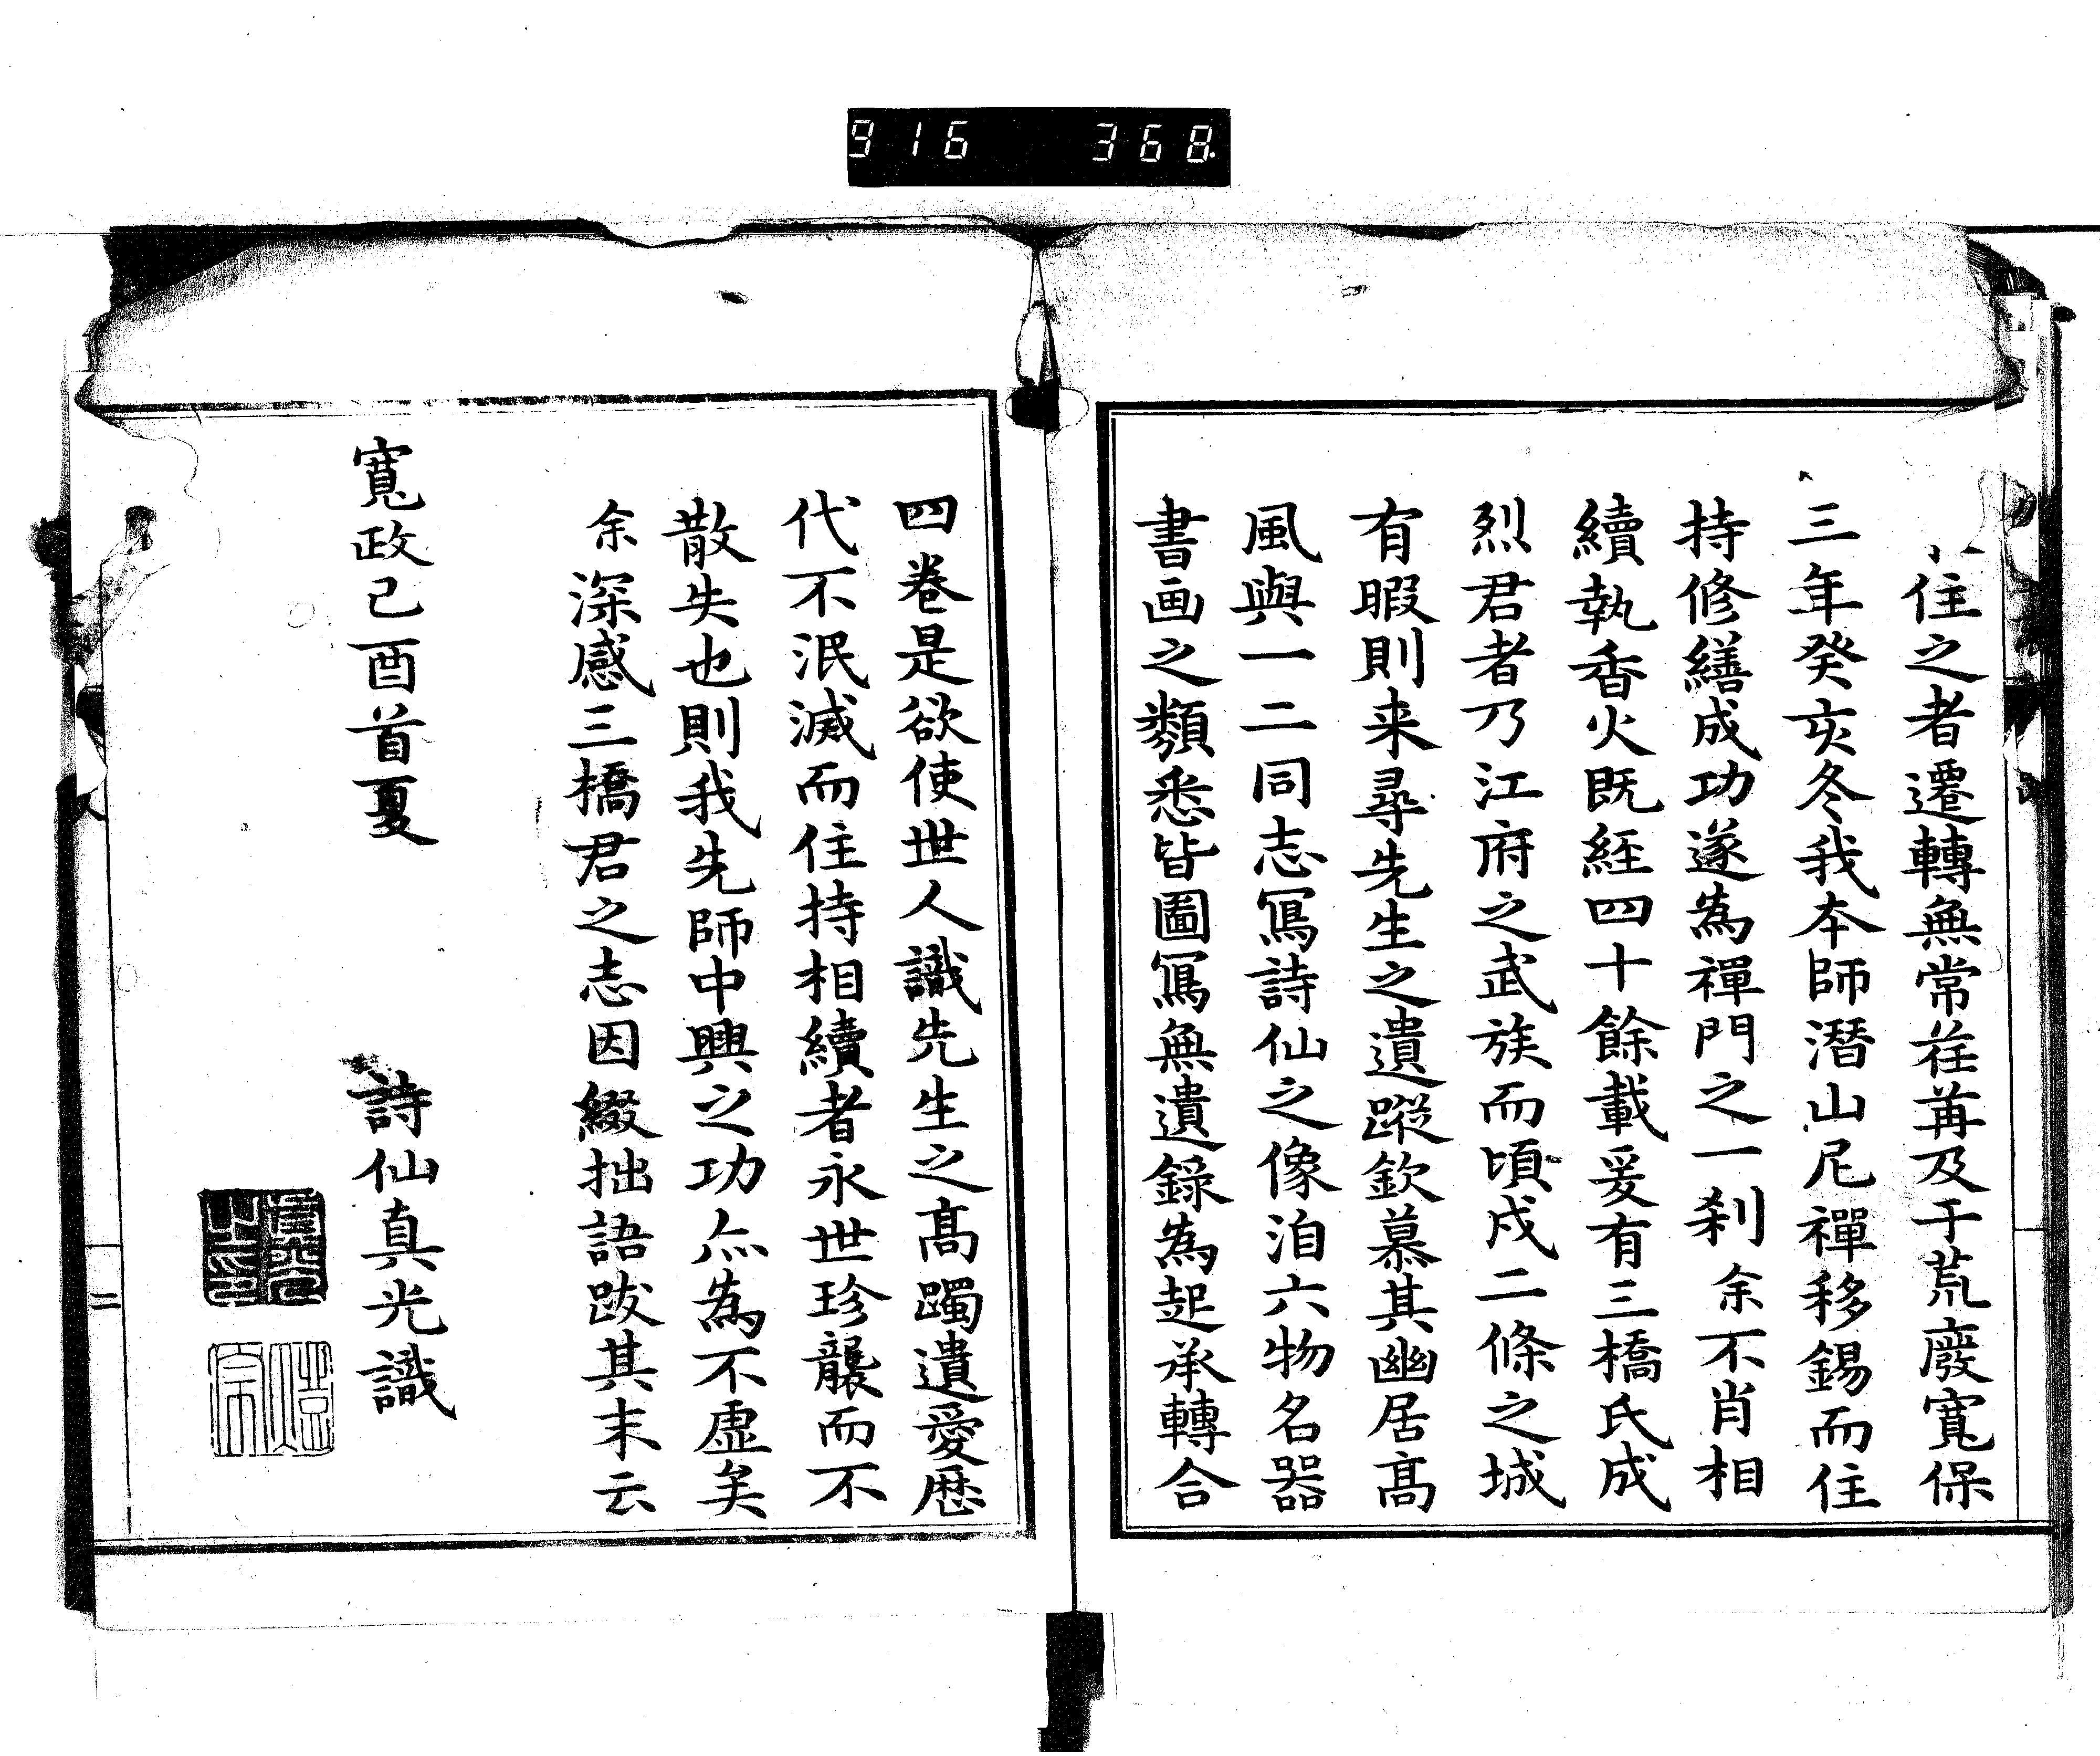 916 368
住之者遷轉無常荏苒及于荒廢寛保
三年癸亥冬我本師潜山尼禪移錫而住
持修繕成功遂為禪門之一刹余不肖相
續執香火既経四十餘載爰有三橋氏成
烈君者乃江府之武族而頃戍二條之城
有暇則来尋先生之遺蹤欽慕其幽居髙
風與一二同志冩詩仙之像洎六物名器
書画之類悉皆圖冩無遺錄為起承轉合
四巻是欲使世人識先生之髙躅遺愛歴
代不泯滅而住持相續者永世珍襲而不
散失也則我先師中興之功亦為不虛矣
余深感三橋君之志因綴拙語跋其末云
寬政己酉首夏
詩仙真光識
二